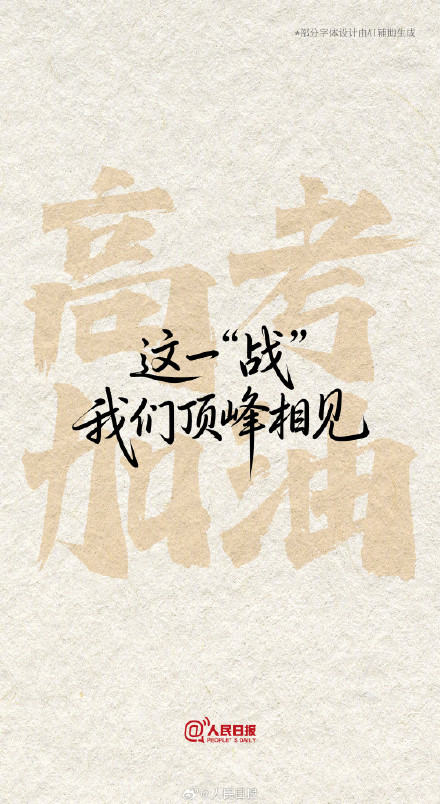 *部分字体设计由AI辅助生成
高考
加油
这一“战”
我们顶峰相见
@人民日报
PEOPLE'S DAILY
@人民日报